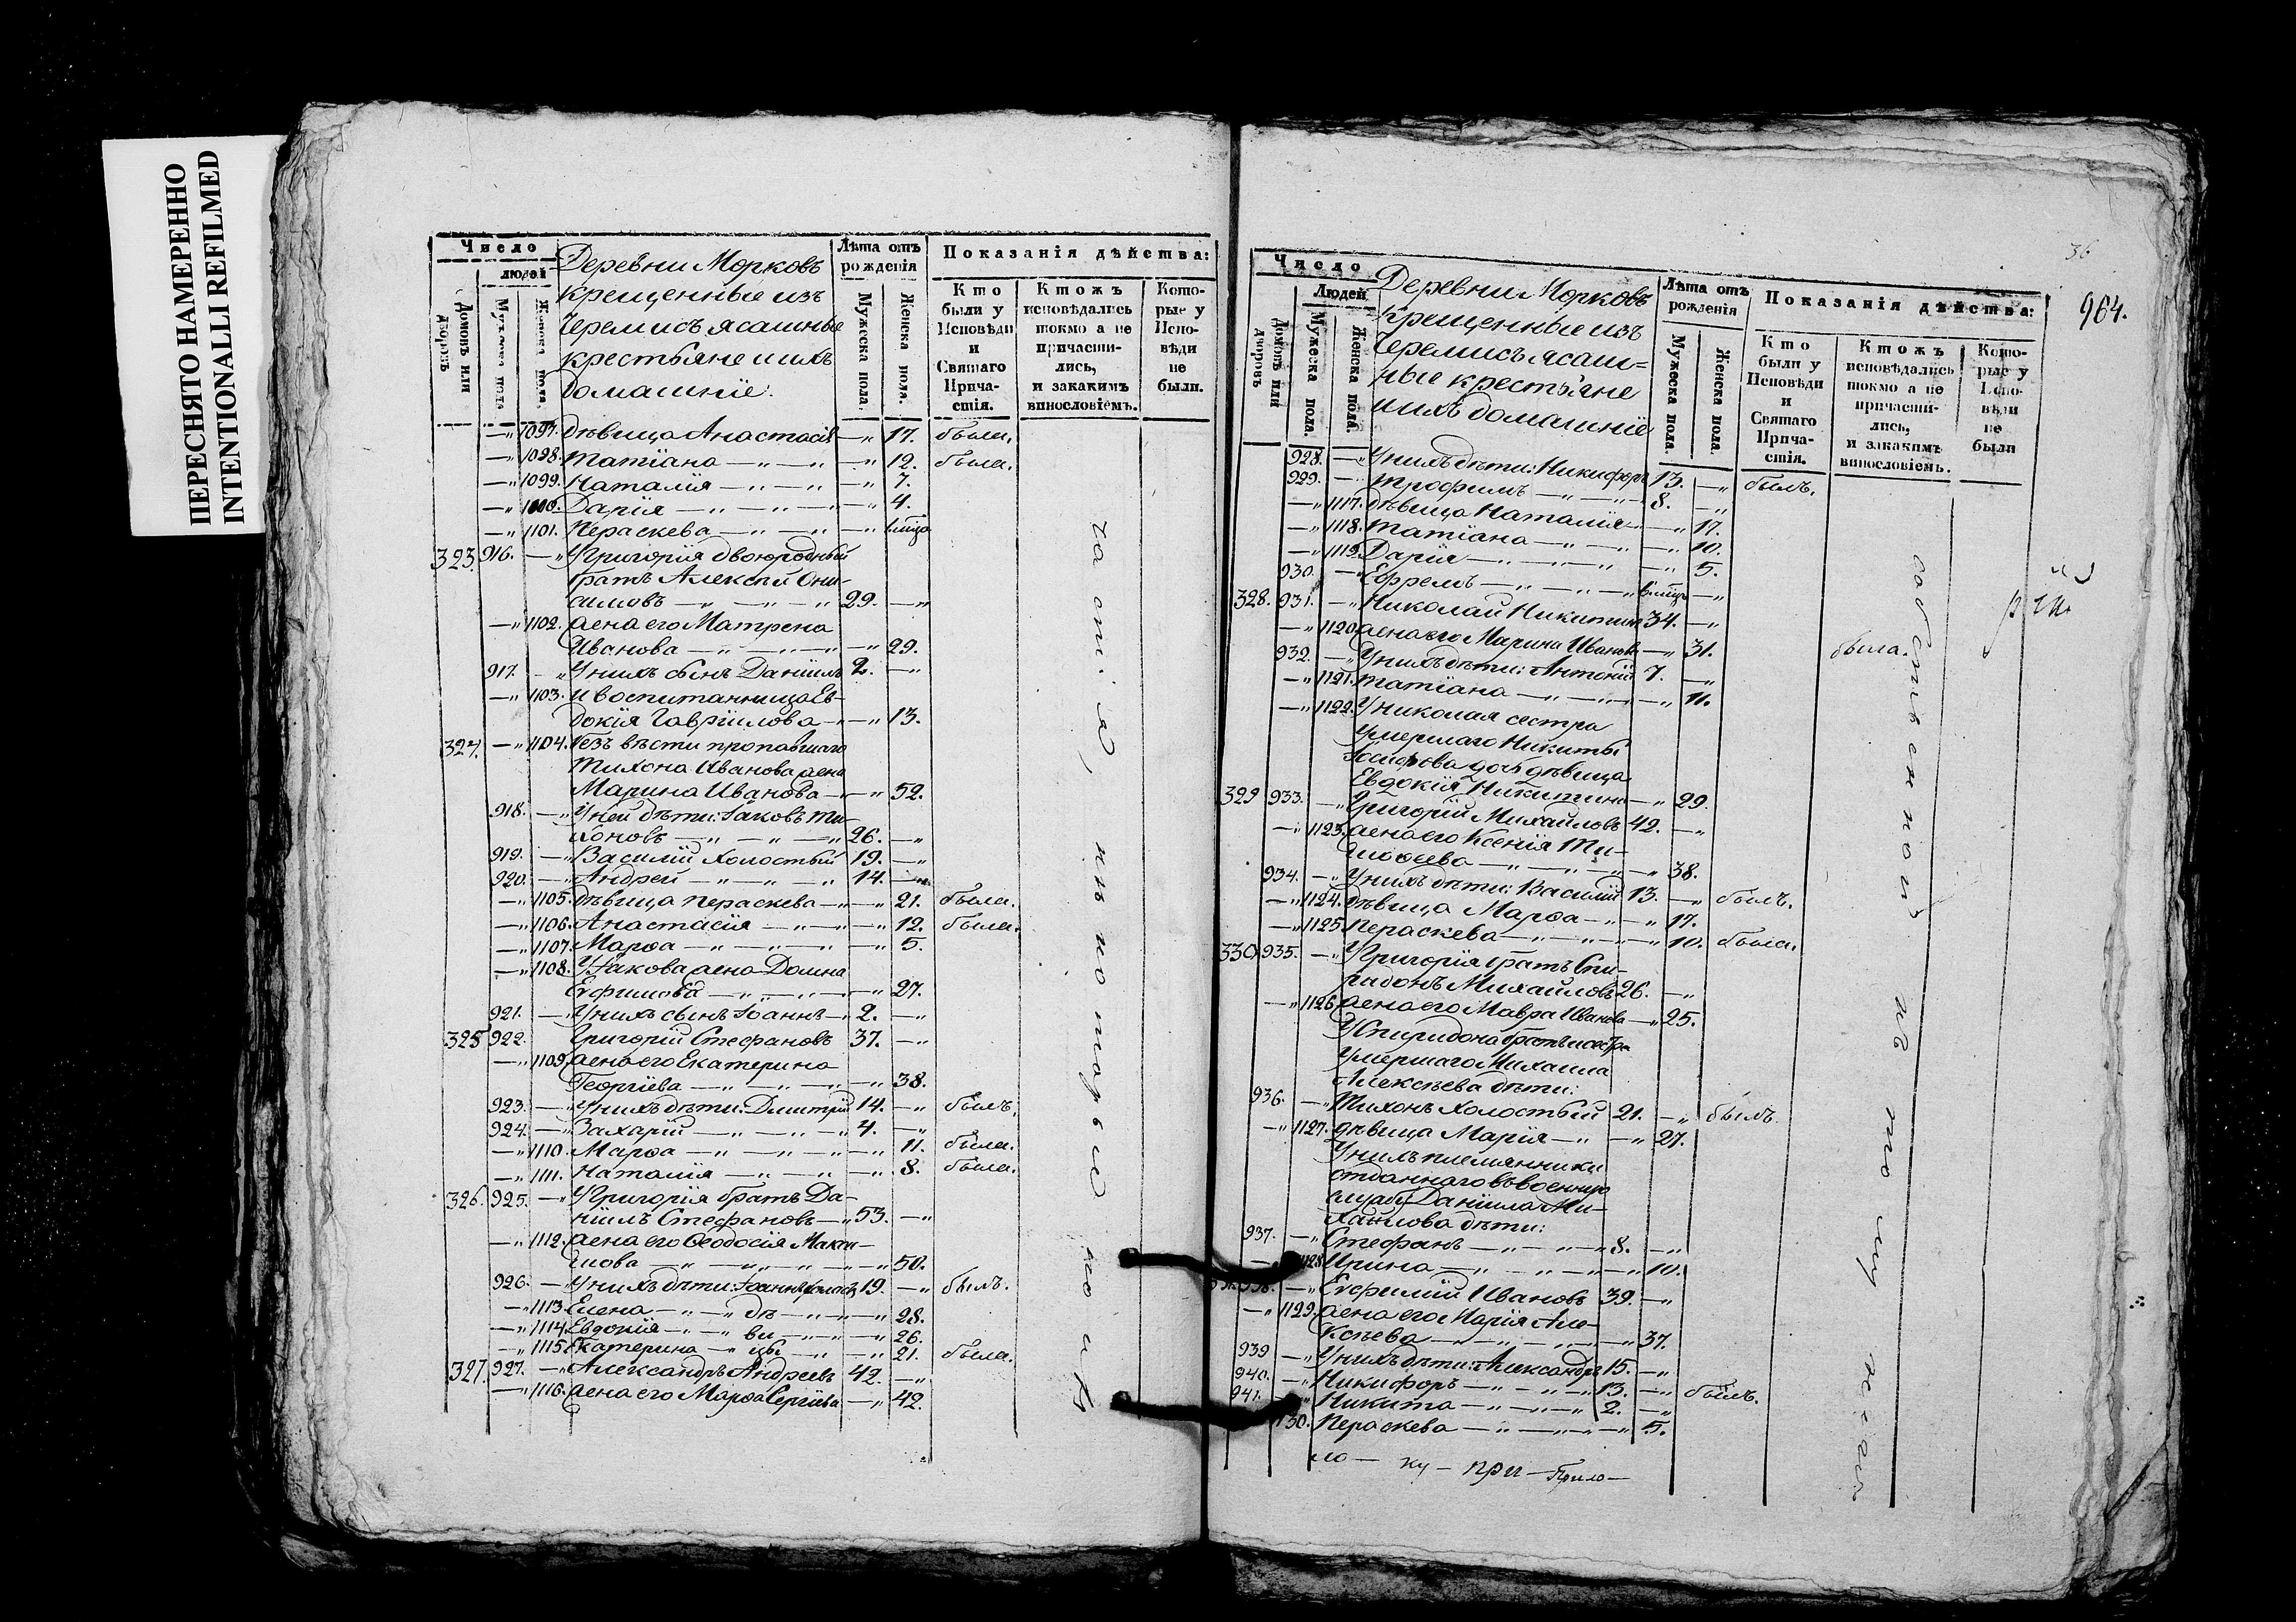 ПЕРЕСНЯТО НАМЕРЕННО
INTENTIONALLI REFILMED
Число
людей
Домовъ или дворовъ
Мужеска пола
Женска пола.
Деревни Морковъ
крещенные изъ
Черемисъ ясашные
крестьяне и ихъ
домашнiе.
Лѣта отъ рожденiя
Мужеска пола.
Женска пола.
Показанiя дѣйства:
Кто были у Исповѣди и Святаго Прича-стiя.
Ктожъ исповѣдались токмо а не причасти-лись, и закакимъ винословiемъ.
Кото-рые у Испо-вѣди не были.
—„ 1097. дѣвица Анастасiя —„ 17. была.
—„ 1098. Татiана —„—„ —„ 12. была.
—„ 1099. Наталiя —„—„ —„ 7.
—„ 1100. Дарiя —„—„ —„ 4.
—„ 1101. Пераскева —„—„ —„
323. 916. —„ У Григорiя двоюродный
братъ Алексѣй Они-
симовъ —„—„—„ 29. —„
—„ 1102. жена его Матрена
Иванова —„—„ —„ 29.
917. —„ У нихъ сынъ Данiилъ 2. —„
—„ 1103. и воспитанница Ев-
докiя Гаврiилова —„ —„ 13.
324. —„ 1104. Безъ вѣсти пропавшаго
Тихона Иванова жена
Марина Иванова —„ —„ 52.
918. —„ У ней дѣти: Iаковъ Ти-
хоновъ —„—„—„ 26. —„
919. —„ Василiй холостый 19. —„
920. —„ Андрей —„—„—„ 14. —„
—„ 1105. дѣвица Пераскева —„ —„ 21. была.
—„ 1106. Анастасiя —„—„ —„ 12. была.
—„ 1107. Марѳа —„—„—„ —„ 5.
—„ 1108. У Iакова жена Домна
Евфимова —„—„ —„ 27.
921. —„ У нихъ сынъ Iоаннъ —„ 2. —„
325 922. Григорiй Стефановъ 37. —„
—„ 1109. жена его Екатерина
Георгiева —„—„—„ —„ 38.
923. —„ У нихъ дѣти: Димитрiй 14. —„ былъ.
924. —„ Захарiй —„—„—„ 4. —„
—„ 1110. Марѳа —„—„—„ —„ 11. была.
—„ 1111. Наталiя —„—„ —„ 8. была.
326. 925. —„ У Григорiя братъ Да-
нiилъ Стефановъ —„ 53. —„
—„ 1112. жена его Ѳеодосiя Макси-
мова —„—„—„ —„ 50.
926. —„ У нихъ дѣти: Iоаннъ холост. 19. —„ былъ.
—„ 1113. Елена —„—„ дѣ —„ —„ 28.
—„ 1114. Евдокiя —„—„ ви —„ —„ 26.
—„ 1115. Екатерина —„ цы —„ —„ 21. была.
327. 927. —„ Александръ Андреевъ 42. —„
—„ 1116. жена его Марѳа Сергiева —„ 42.
36
964.
Число
Людей
Домовъ или дворовъ
Мужеска пола.
Женска пола.
Деревни Морковъ
крещенные изъ
Черемисъ ясаш-
ные крестьяне
и ихъ домашнiе
Лѣта отъ рожденiя
Мужеска пола
Женска пола.
Показанiя дѣйства:
Кто были у Исповѣди и Святаго Прича-стiя.
Ктожъ исповѣдались токмо а не причасти-лись, и закакимъ винословiемъ.
Кото-рые у Испо-вѣди не были
928. —„ У нихъ дѣти: Никифоръ 13. —„ былъ.
929. —„ Трофимъ —„—„ 8. —„
—„ 1117. дѣвица Наталiя —„ —„ 17.
—„ 1118. Татiана —„—„ —„ 10.
—„ 1119. Дарiя —„—„—„ —„ 5.
930. —„ Ефремъ —„—„ —„
328. 931. —„ Николай Никитинъ 34. —„
—„ 1120. жена его Марина Иванова —„ 31. была.
932. —„ У нихъ дѣти: Антонiй 7. —„
—„ 1121. Татiана —„—„ —„ 11.
—„ 1122. У Николая сестра
умершаго Никиты
Iосифова дочь дѣвица
Евдокiя Никитина —„ 29.
329 933. —„ Григорiй Михайловъ 42. —„
—„ 1123. жена его Ксенiя Ти-
моѳеева —„—„ —„ 38.
934. —„ У нихъ дѣти: Василiй 13. —„ былъ.
—„ 1124. дѣвица Марѳа —„ —„ 17.
—„ 1125. Пераскева —„—„ —„ 10. была.
330. 935. —„ У Григорiя братъ Спи-
ридонъ Михайловъ 26. —„
—„ 1126. жена его Мавра Иванова —„ 25.
У Спиридона братъ и сестра
умершаго Михаила
Алексѣева дѣти:
936. —„ Тихонъ холостый 21. —„ былъ.
—„ 1127. дѣвица Марiя —„ —„ 27.
У нихъ племянники
отданнаго въ военную
службу Данiила Ми-
хайлова дѣти:
937. —„ Стефанъ —„—„ 8. —„
1128. Ирина —„—„—„ —„ 10.
938. —„ Евфимiй Ивановъ 39. —„
—„ 1129. жена его Марiя Але-
ксѣева —„—„ —„ 37.
939 —„ У нихъ дѣти: Александръ 15. —„
940. —„ Никифоръ —„—„ 13. —„ былъ.
941. —„ Никита —„—„ 2. —„
1130. Пераскева —„—„ —„ 5.
ло — ку — при —